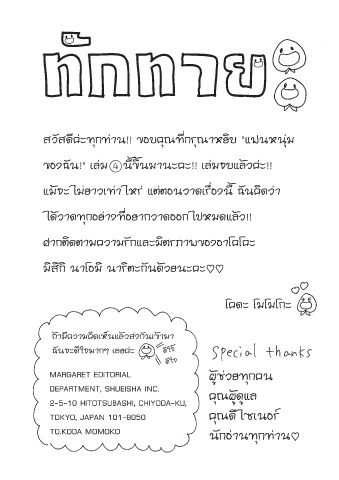 ทักทาย
สวัสดีค่ะทุกท่าน!! ขอบคุณที่กรุณาหยิบ "แฟนหนุ่ม
ของฉัน!" เล่ม④นี้ขึ้นมานะคะ!! เล่มจบแล้วค่ะ!!
แม้จะไม่ยาวเท่าไหร่ แต่ตอนวาดเรื่องนี้ ฉันคิดว่า
ได้วาดทุกอย่างที่อยากวาดออกไปหมดแล้ว!!
ฝากติดตามความรักและมิตรภาพของอาโคโคะ
มิสึกิ นาโอมิ นาริตะกันด้วยนะคะ♡♡
โคดะ โมโมโกะ
ถ้ามีความคิดเห็นแล้วส่งกันเข้ามา
ฉันจะดีใจมากๆ เลยค่ะ
ดีใจ
ดีใจ
MARGARET EDITORIAL
DEPARTMENT, SHUEISHA INC.
2-5-10 HITOTSUBASHI, CHIYODA-KU,
TOKYO, JAPAN 101-8050
TO.KODA MOMOKO
Special thanks
ผู้ช่วยทุกคน
คุณผู้ดูแล
คุณดีไซเนอร์
นักอ่านทุกท่าน♡